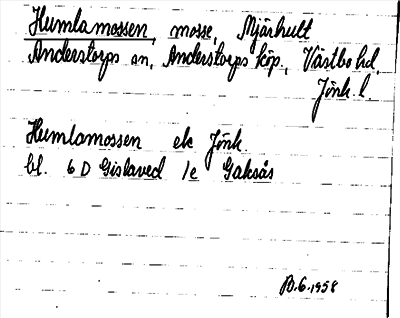 Humlamossen, mosse, Mjärhult
Anderstorps sn, Anderstorps köp., Västbo hd,
Jönk. l.
Humlamossen ek Jönk.
bl. 6 D Gislaved 1e Gaksås
B.G. 1958